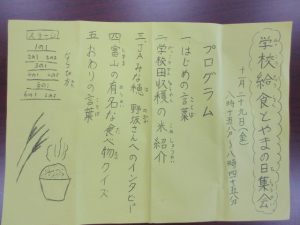 学校給食とやまの日集会
十月二十九日(金)
八時十五分～八時四十五分
プログラム
一 はじめの言葉
二 学校田収穫の米紹介
三 JAみな穂 野坂さんへのインタビュー
四 富山の有名な食べ物クイズ
五 おわりの言葉
ならびかた
ステージ
1の1
2の1 2の2
3の1
4の1 4の2
5の1
6の1 6の2